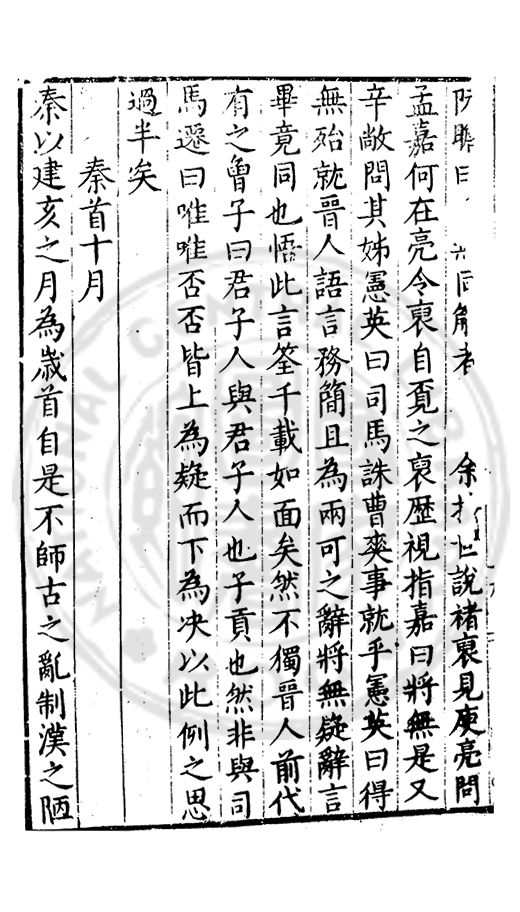 曰者余說褚裒見庾亮問
孟嘉何在亮令裒自覔之裒歴視指嘉曰將無是又
辛敞問其姊憲英曰司馬誅曹爽事就乎憲英曰得
無殆就晉人語言務簡且為兩可之辭將無疑辭言
畢竟同也悟此言筌千載如面矣然不獨晉人前代
有之曾子曰君子人與君子人也子貢也然非與司
馬遷曰唯唯否否皆上為疑而下為决以此例之思
過半矣
秦首十月
秦以建亥之月為嵗首自是不師古之亂制漢之陋